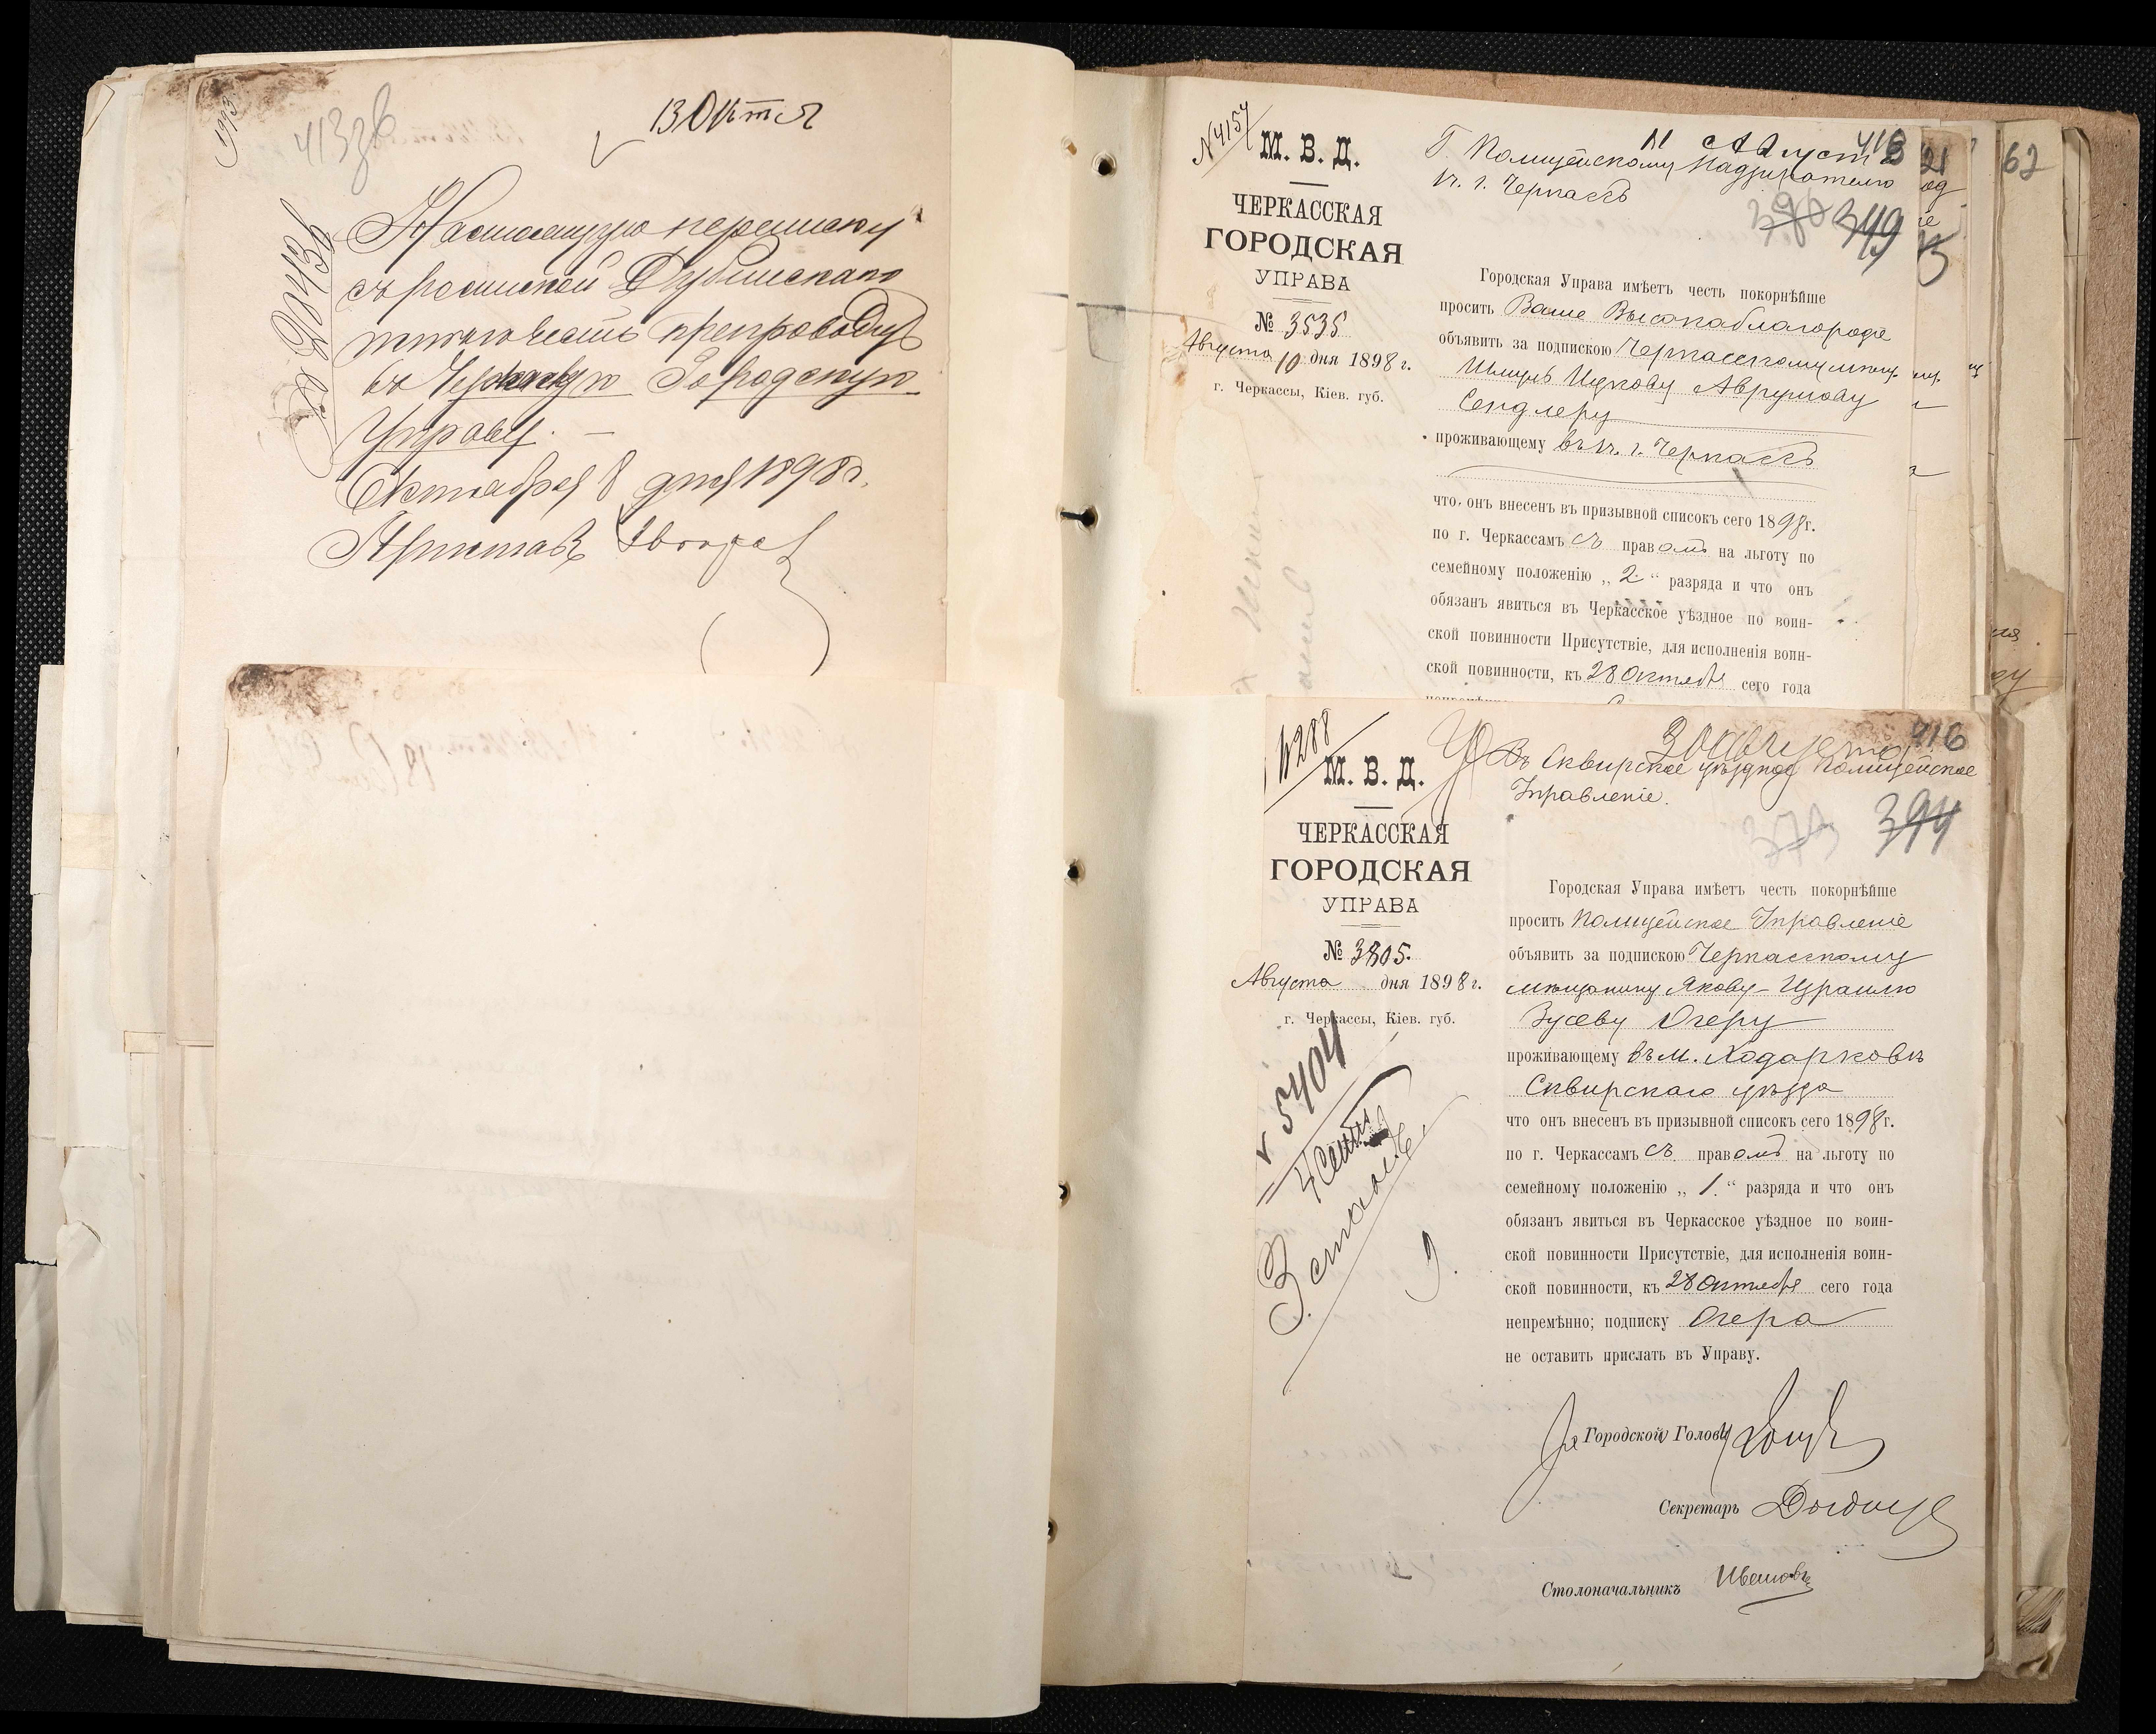 413 зв
13 Октя
Настоящую переписку
съ роспиской Дубинскаго
препроводить
въ Черкасскую Городскую
Управу. —
Октября 8 дня 1898 г.
Приставъ
№ 4157
М. В. Д.
ЧЕРКАССКАЯ
ГОРОДСКАЯ
УПРАВА
№ 3535
Августа 10 дня 1898 г.
г. Черкассы, Кіев. губ.
11 Август
Г. Полицейскому Надзирателю
г. Черкассъ
349
Городская Управа имѣетъ честь покорнѣйше
просить Ваше Высокоблагородіе
объявить за подпискою Черкасскому мѣщ.
Ицкову Аврумову
Сендлеру
проживающему въ г. Черкассъ
что онъ внесенъ въ призывной списокъ сего 1898 г.
по г. Черкассамъ съ правомъ на льготу по
семейному положенію „ 2 “ разряда и что онъ
обязанъ явиться въ Черкасское уѣздное по воин-
ской повинности Присутствіе, для исполненія воин-
ской повинности, къ 28 Октября сего года
21
62
4288
М. В. Д.
ЧЕРКАССКАЯ
ГОРОДСКАЯ
УПРАВА
№ 3805.
Августа дня 1898 г.
г. Черкассы, Кіев. губ.
5404
4 Сент
3 столъ
30 августа
416
Въ Сквирское уѣздное Полицейское
Управленіе.
394
Городская Управа имѣетъ честь покорнѣйше
просить Полицейское Управленіе
объявить за подпискою Черкасскому
мѣщанину Якову-Израилю
Зусеву Огеру
проживающему въ м. Ходорковѣ
Сквирскаго уѣзда
что онъ внесенъ въ призывной списокъ сего 1898 г.
по г. Черкассамъ съ правомъ на льготу по
семейному положенію „ 1. “ разряда и что онъ
обязанъ явиться въ Черкасское уѣздное по воин-
ской повинности Присутствіе, для исполненія воин-
ской повинности, къ 28 Октября сего года
непремѣнно; подписку Огера
не оставить прислать въ Управу.
За Городской Голова
Секретарь
Столоначальникъ